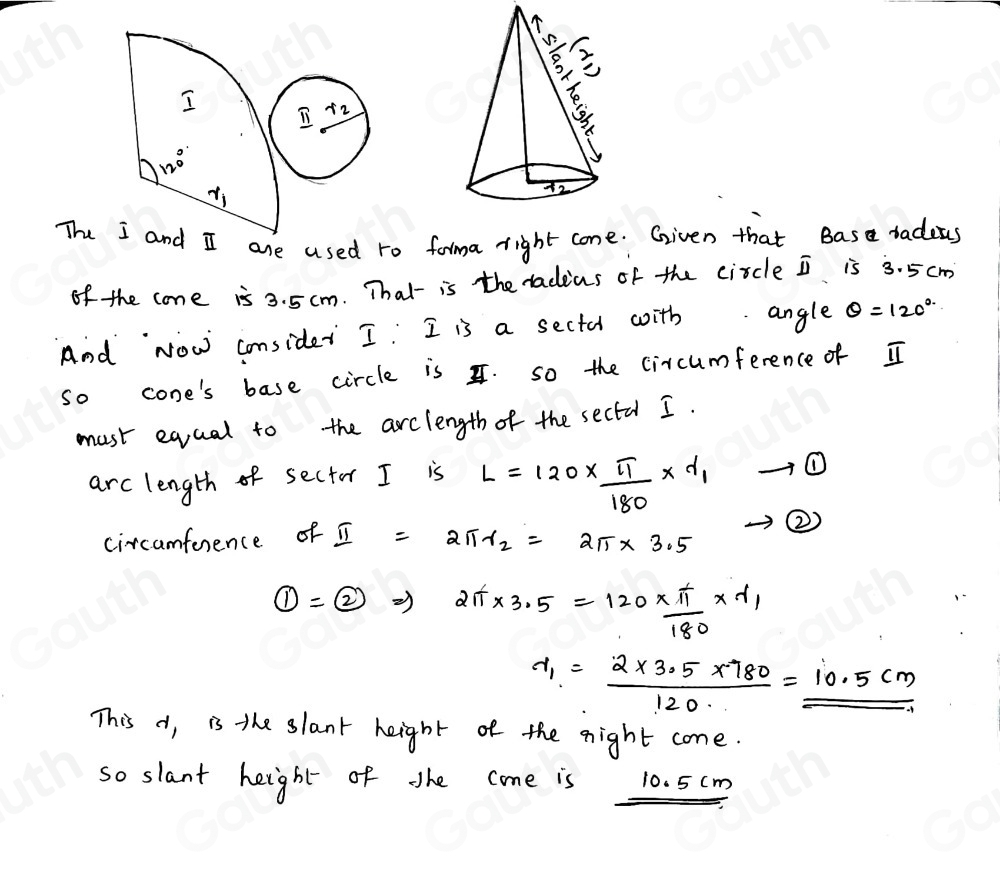 I
120°
r₁
II r₂
(r₁)
slant height
r₂
The I and II are used to forma right cone. Given that Base radius
of the cone is 3.5 cm. That is the radius of the circle II is 3.5 cm
And Now consider I : I is a sector with angle θ = 120°.
so cone's base circle is II. so the circumference of II
must equal to the arc length of the sector I.
arc length of sector I is L = 120 × π/180 × r₁ → ①
circumference of II = 2πr₂ = 2π × 3.5 → ②
① = ② ⇒ 2π × 3.5 = 120 × π/180 × r₁
r₁ = 2 × 3.5 × 180/120 = 10.5 cm
This r₁ is the slant height of the right cone.
so slant height of the cone is 10.5 cm
Gauth